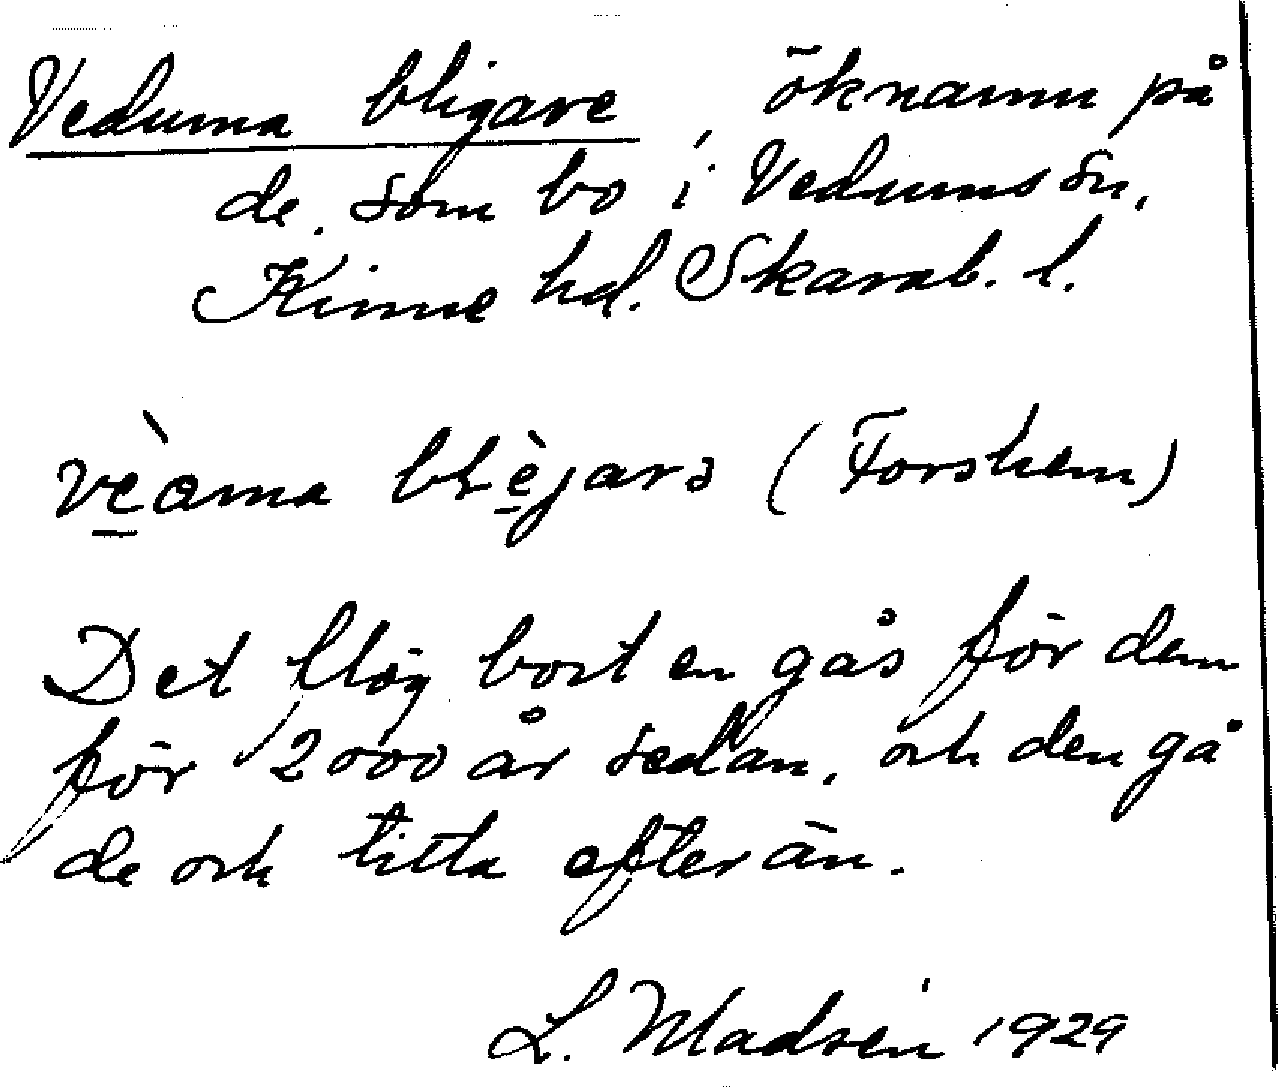 Veduma bligare, öknamn på
de som bo i Vedums sn,
Kinne hd. Skarab. l.
vèama blèjara (Forshem)
Det flög bort en gås för dem
för 2000 år sedan, och den gå
de och titta efter än.
L. Madsén 1929